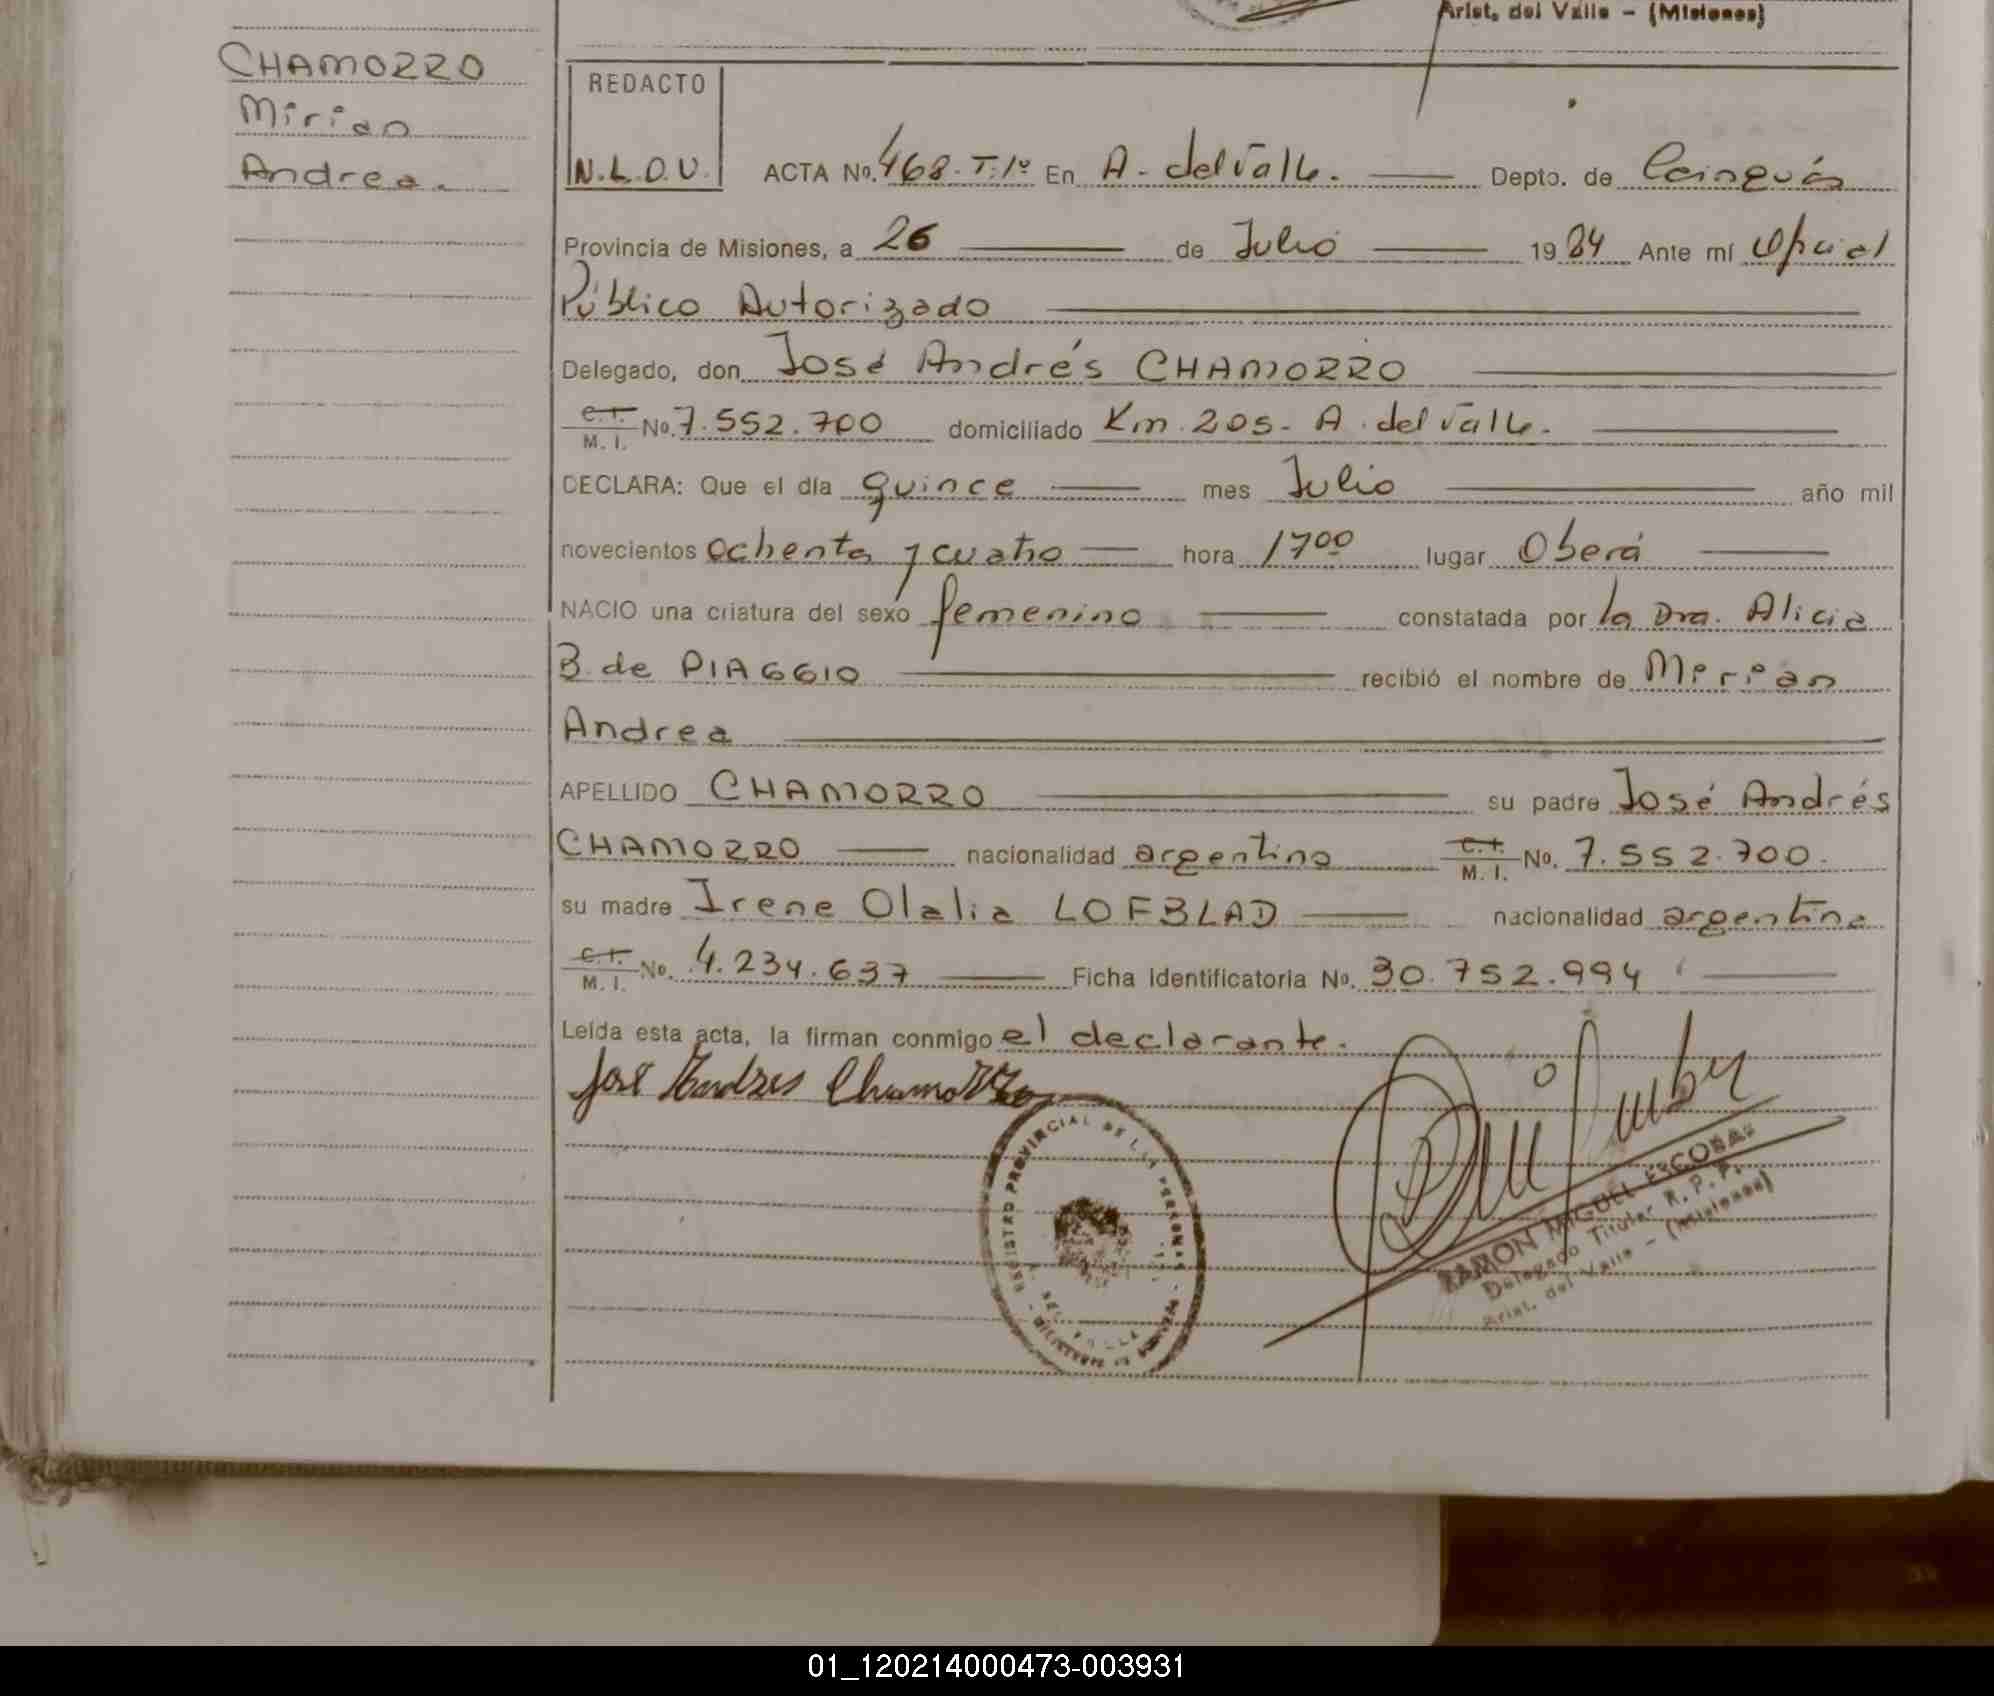 Arist. del Valle - (Misiones)
CHAMORRO
Mirian
Andrea.
REDACTO
N.L.O.V.
ACTA No. 468-T:1º En A. del Valle. Depto. de Cainguás
Provincia de Misiones, a 26 de Julio 1984 Ante mí Oficial
Público Autorizado
Delegado, don José Andrés CHAMORRO
C.I. M. I. No. 7.552.700 domiciliado Km. 205- A. del Valle.
DECLARA: Que el día quince mes Julio año mil
novecientos ochenta y cuatro hora 17⁰⁰ lugar Oberá
NACIO una criatura del sexo femenino constatada por la Dra. Alicia
B. de PIAGGIO recibió el nombre de Mirian
Andrea
APELLIDO CHAMORRO su padre José Andrés
CHAMORRO nacionalidad argentino C.I. M. I. No. 7.552.700.
su madre Irene Olalia LOFBLAD nacionalidad argentina
C.I. M. I. No. 4.234.637 Ficha Identificatoria No. 30.752.994
Leída esta acta, la firman conmigo el declarante.
José Andres Chamorro
REGISTRO PROVINCIAL DE LAS PERSONAS
RAMON MIGUEL ESCOBAR
Delegado Titular R. P. P.
Arist. del Valle - (Misiones)
01_120214000473-003931